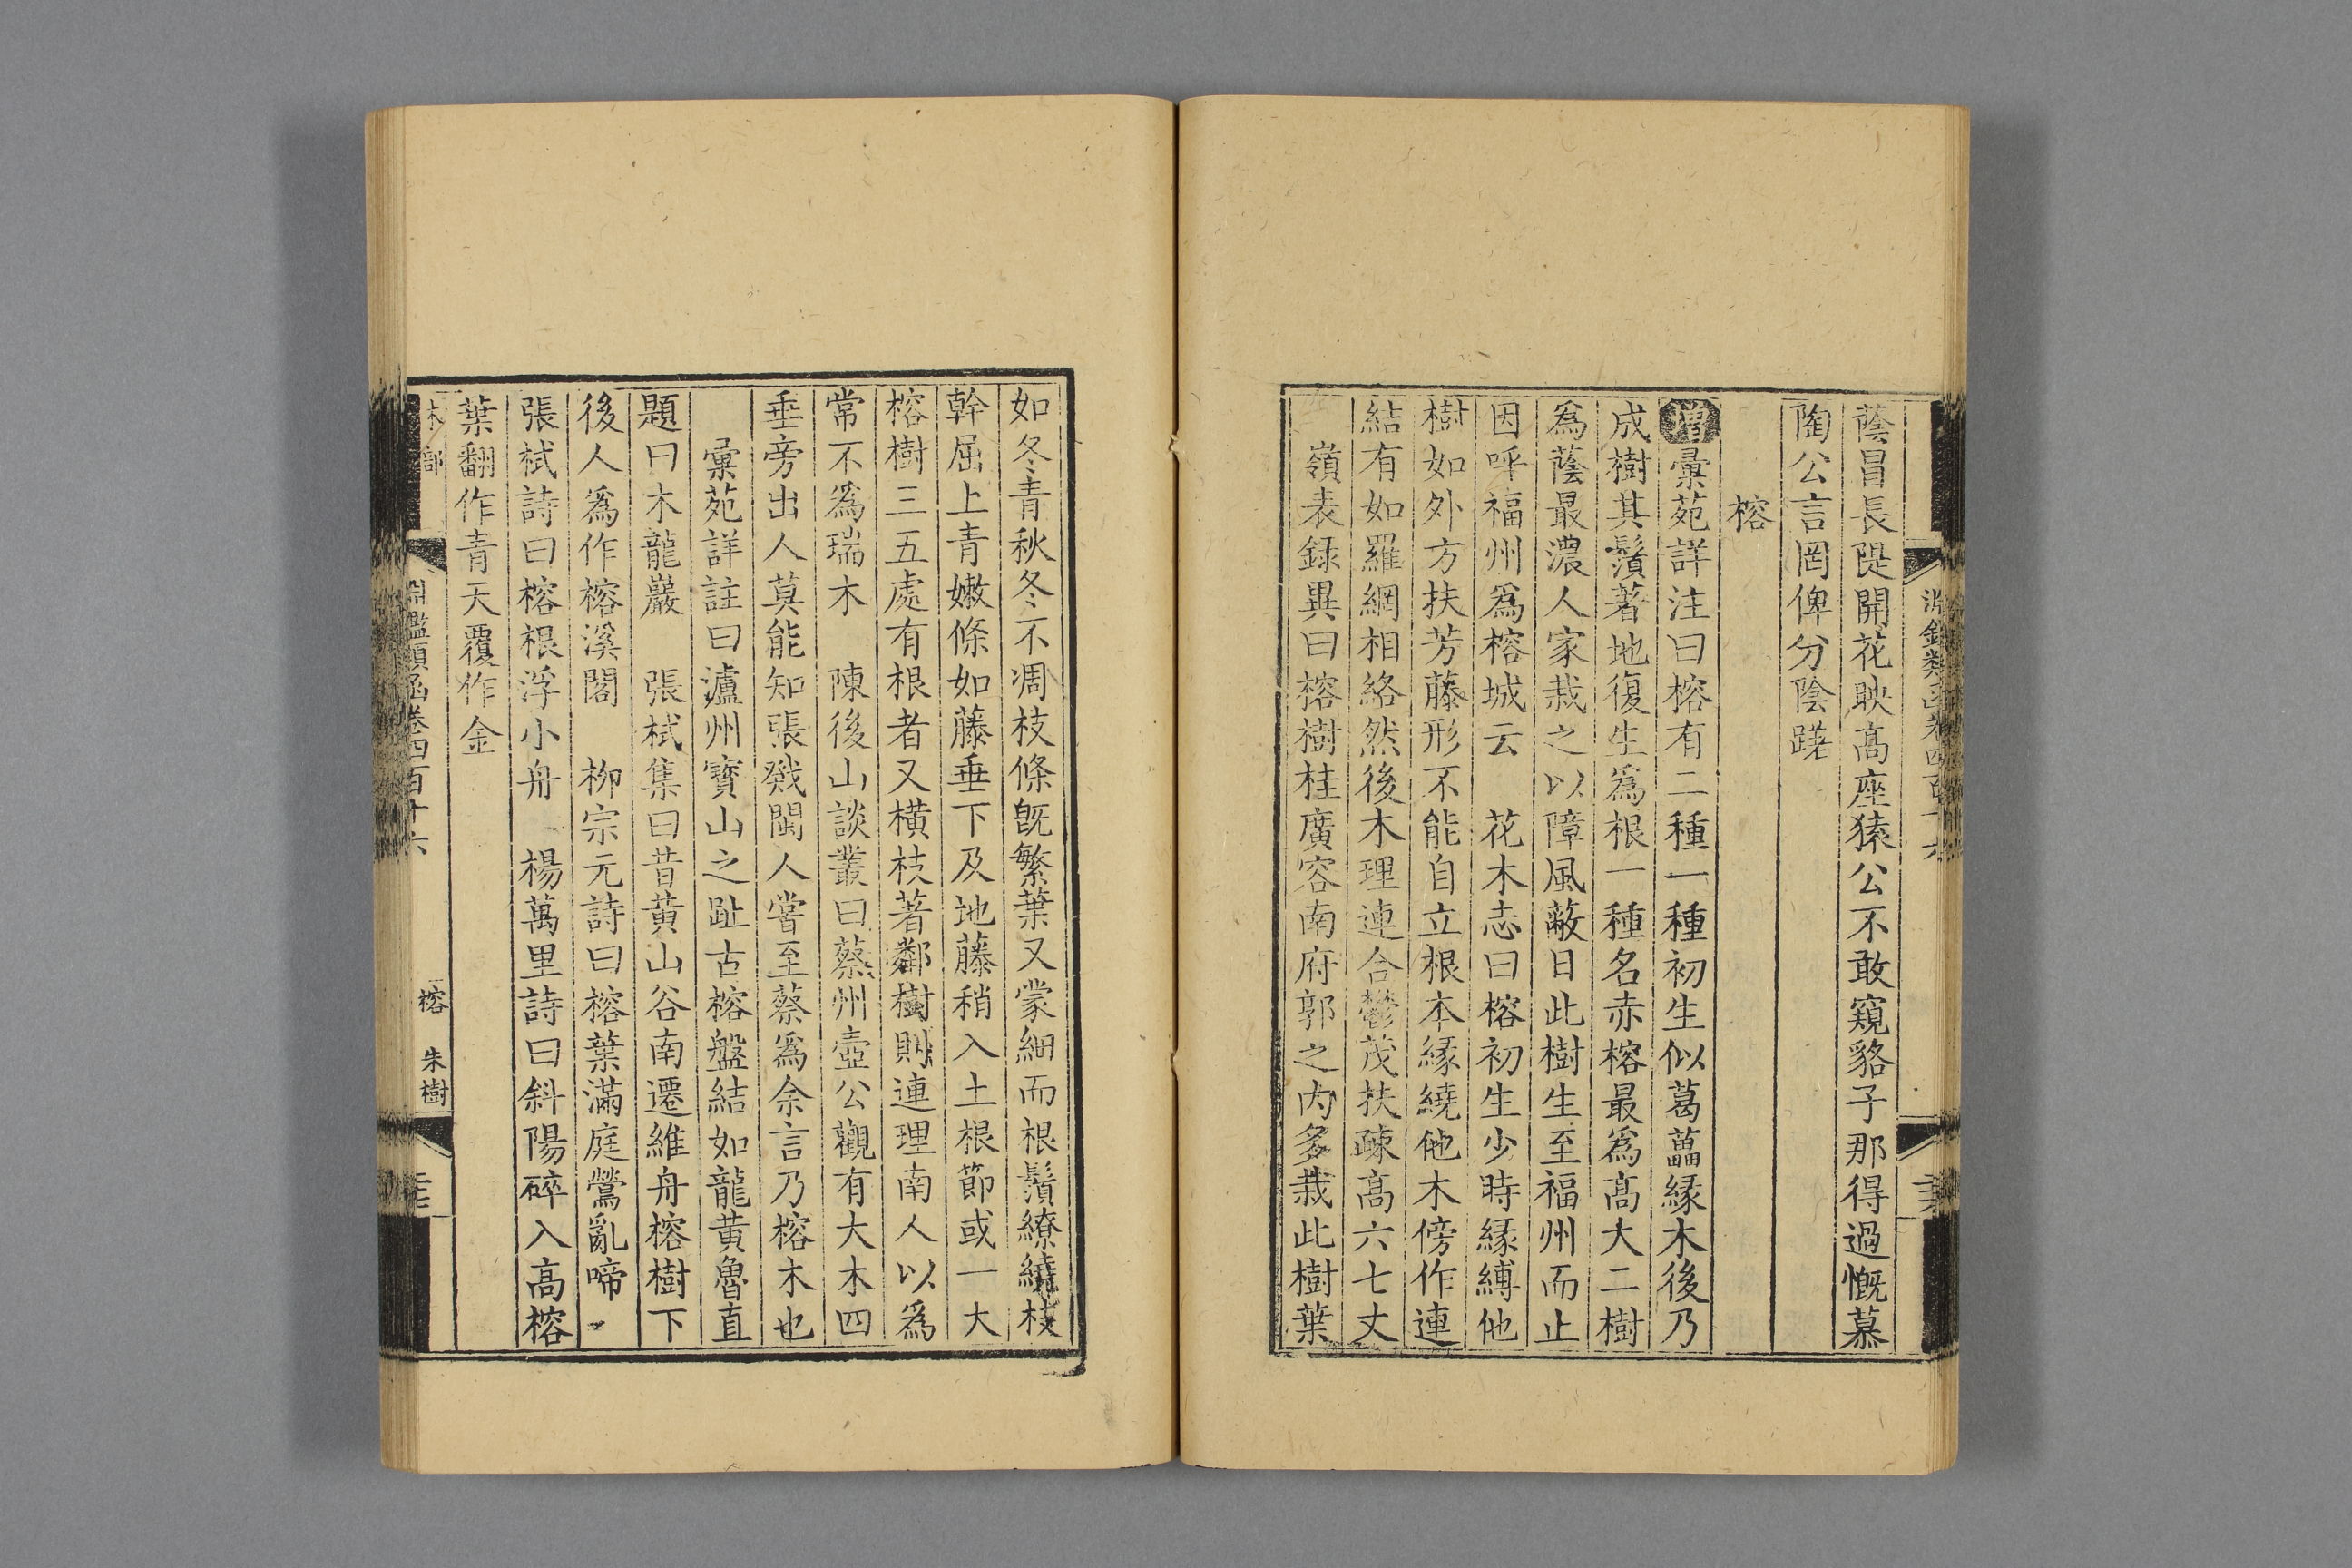 蔭昌長隄開花映髙座猿公不敢窺貉子那得過慨慕
陶公言罔俾分陰蹉
榕
增彚苑詳注曰榕有二種一種初生似葛藟緣木後乃
成樹其鬚著地復生爲根一種名赤榕最爲髙大二樹
爲蔭最濃人家栽之以障風蔽日此樹生至福州而止
因呼福州爲榕城云　花木志曰榕初生少時緣縛他
樹如外方扶芳藤形不能自立根本緣繞他木傍作連
結有如羅網相絡然後木理連合鬱茂扶疎髙六七丈
嶺表録異曰榕樹桂廣容南府郭之内多栽此樹葉
如冬青秋冬不凋枝條旣繁葉又蒙細而根鬚繚繞枝
幹屈上青嫩條如藤垂下及地藤稍入土根節或一大
榕樹三五處有根者又横枝著鄰樹則連理南人以爲
常不爲瑞木　陳後山談叢曰蔡州壺公觀有大木四
垂旁出人莫能知張戣閩人嘗至蔡爲余言乃榕木也
彚苑詳註曰瀘州寳山之趾古榕盤結如龍黄魯直
題曰木龍巖　張栻集曰昔黄山谷南遷維舟榕樹下
後人爲作榕溪閣　栁宗元詩曰榕葉滿庭鶯亂啼
張栻詩曰榕根浮小舟　楊萬里詩曰斜陽碎入髙榕
葉翻作青天覆作金
木部　淵鑑類函卷四百十六　榕　朱樹